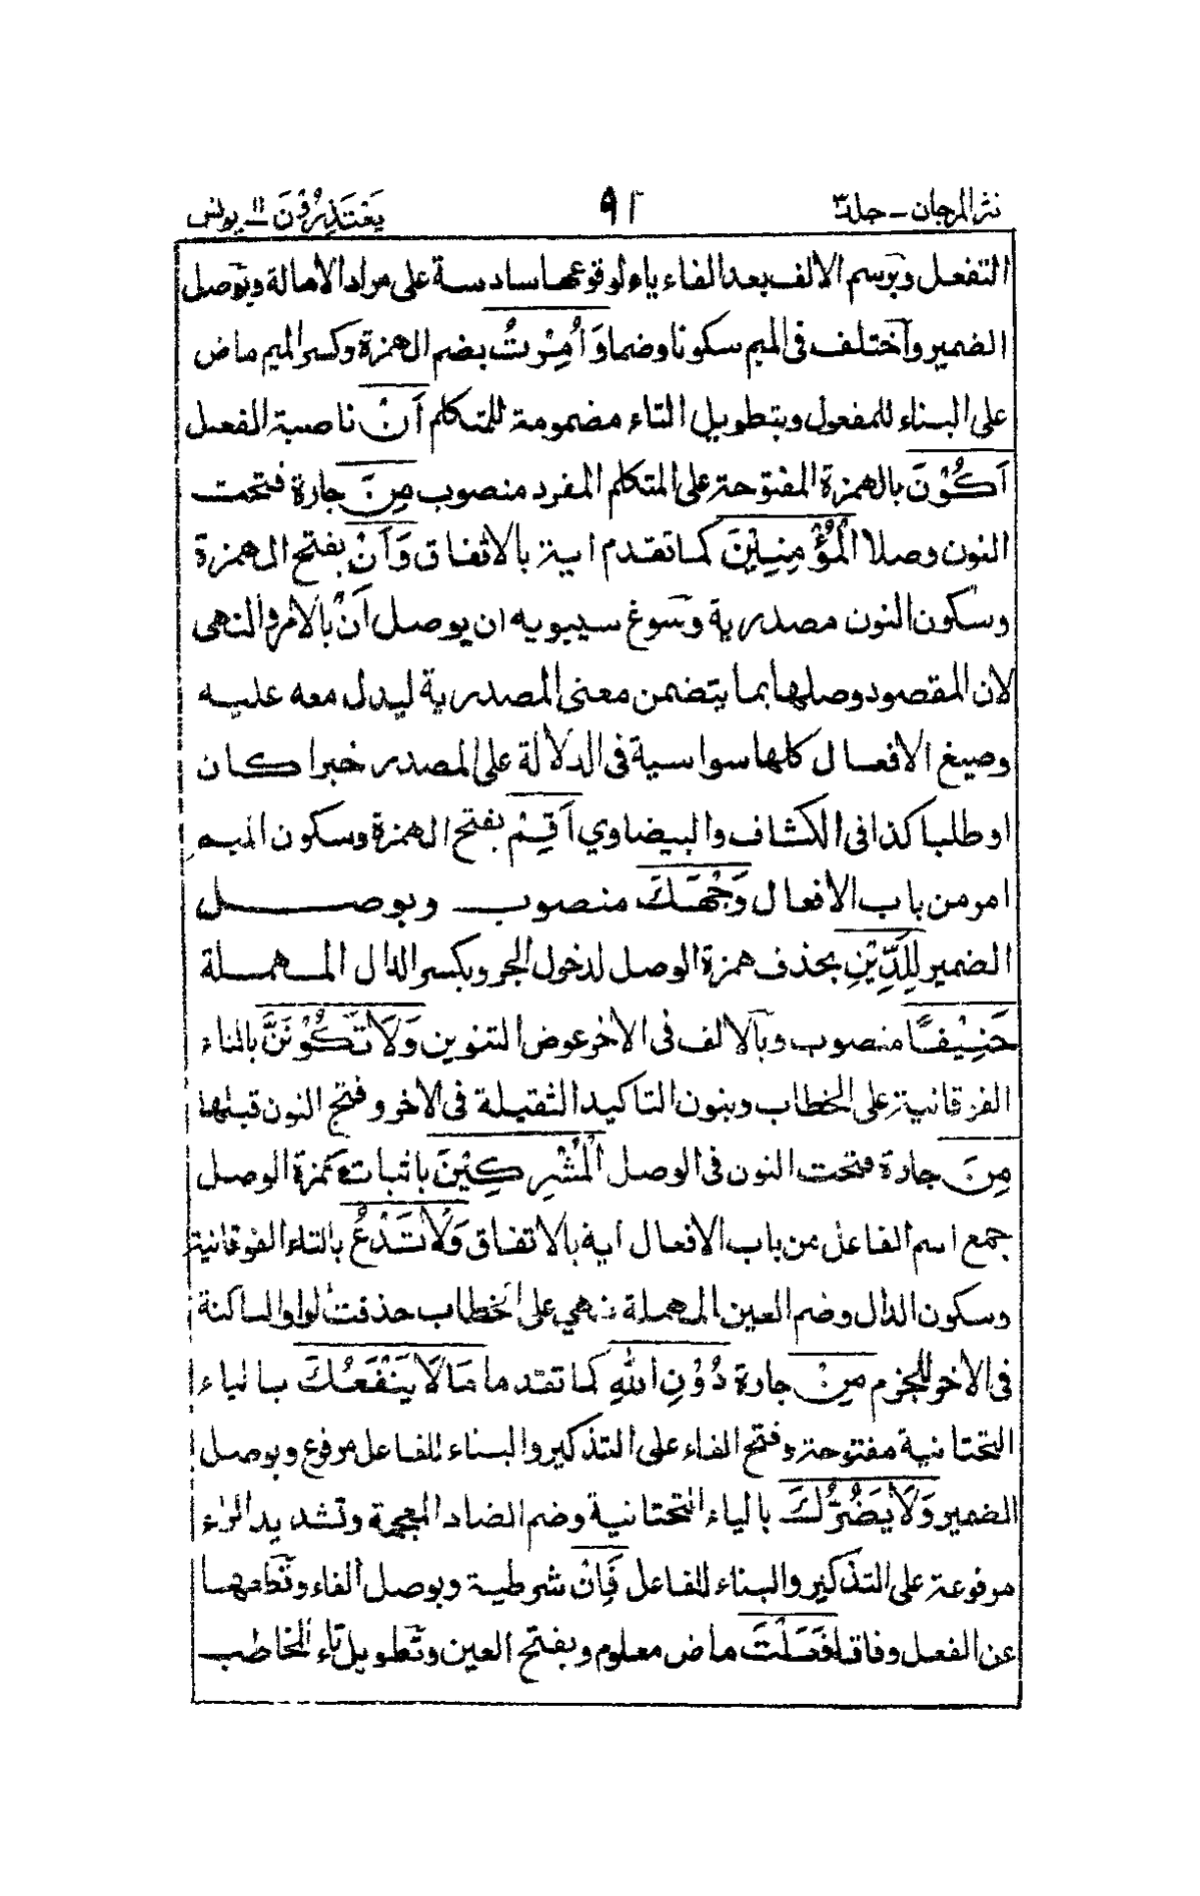 نثر المرجان - جلد ٣ ٩٢ يَعْتَذِرُوْنَ ١١ - يونس
التفعل وبرسم الالف بعد الفاء ياء لوقوعها سادسة على مراد الامالة وبوصل
الضمير واختلف فى الميم سكونا وضما وَأُمِرْتُ بضم الهمزة وكسر الميم ماض
على البناء للمفعول وبتطويل التاء مضمومة للمتكلم اَنْ ناصبة الفعل
اَكُوْنَ بالهمزة المفتوحة على المتكلم المفرد منصوب مِنَ جارة فتحت
النون وصلا الْمُؤْمِنِيْنَ كما تقدم اية بالاتفاق وَاَنْ بفتح الهمزة
وسكون النون مصدرية وسوغ سيبويه ان يوصل اَنْ بالامر والنهى
لان المقصود وصلها بما يتضمن معنى المصدرية ليدل معه عليه
وصيغ الافعال كلها سواسية فى الدلالة على المصدر خبرا كان
او طلبا كذا فى الكشاف والبيضاوي اَقِمْ بفتح الهمزة وسكون الميم
امر من باب الافعال وَجْهَكَ منصوب وبوصل
الضمير لِلدِّيْنِ بحذف همزة الوصل لدخول الجر وبكسر الدال المهملة
حَنِيْفًا منصوب وبالالف فى الاخر عوض التنوين وَلَا تَكُوْنَنَّ بالتاء
الفوقانية على الخطاب وبنون التاكيد الثقيلة فى الاخر وفتح النون قبلها
مِنَ جارة فتحت النون فى الوصل الْمُشْرِكِيْنَ باثبات همزة الوصل
جمع اسم الفاعل من باب الافعال اية بالاتفاق وَلَا تَدْعُ بالتاء الفوقانية
وسكون الدال وضم العين المهملة نهي على الخطاب حذفت الواو الساكنة
فى الاخر للجزم مِنْ جارة دُوْنِ اللّٰهِ كما تقدم مَا لَا يَنْفَعُكَ بالياء
التحتانية مفتوحة وفتح الفاء على التذكير والبناء للفاعل مرفوع وبوصل
الضمير وَلَا يَضُرُّكَ بالياء التحتانية وضم الضاد المعجمة وتشديد الراء
مرفوعة على التذكير والبناء للفاعل فَاِنْ شرطية وبوصل الفاء وقطعها
عن الفعل وفاقا فَعَلْتَ ماض معلوم وبفتح العين وتطويل تاء المخاطب